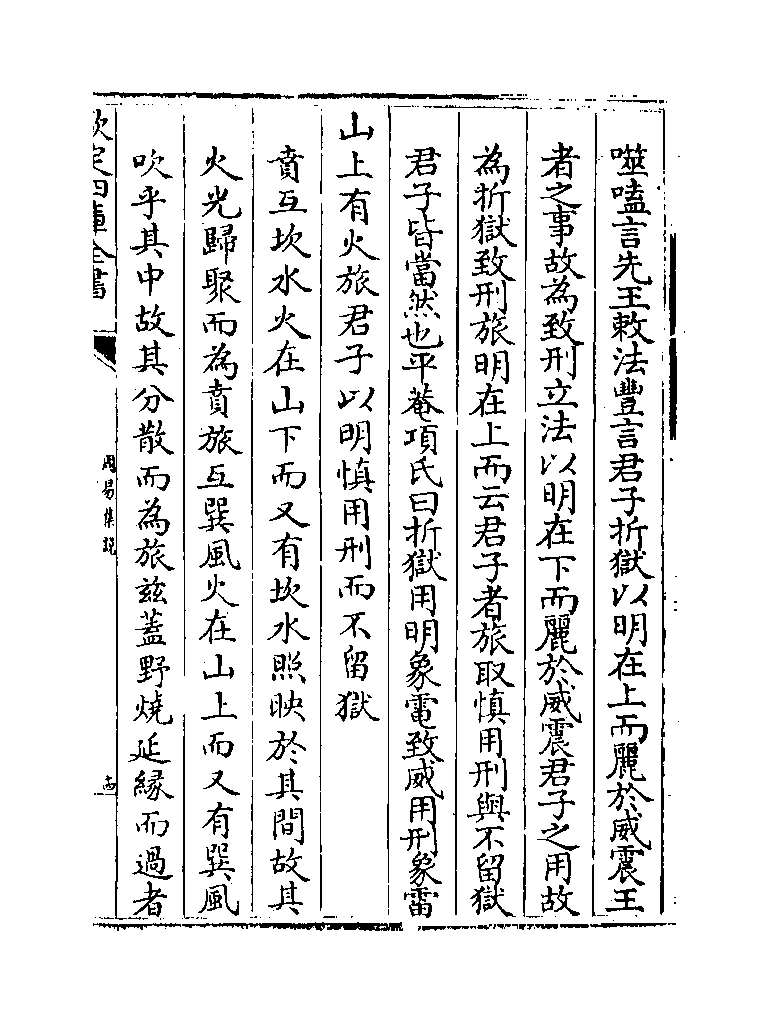 噬嗑言先王敕法豐言君子折獄以明在上而麗於威震王
者之事故為致刑立法以明在下而麗於威震君子之用故
為折獄致刑旅明在上而云君子者旅取慎用刑與不留獄
君子皆當然也平菴項氏曰折獄用明象電致威用刑象雷
山上有火旅君子以明慎用刑而不留獄
賁互坎水火在山下而又有坎水照映於其間故其
火光歸聚而為賁旅互巽風火在山上而又有巽風
吹乎其中故其分散而為旅兹蓋野燒延緣而過者
欽定四庫全書
周易集說
十四